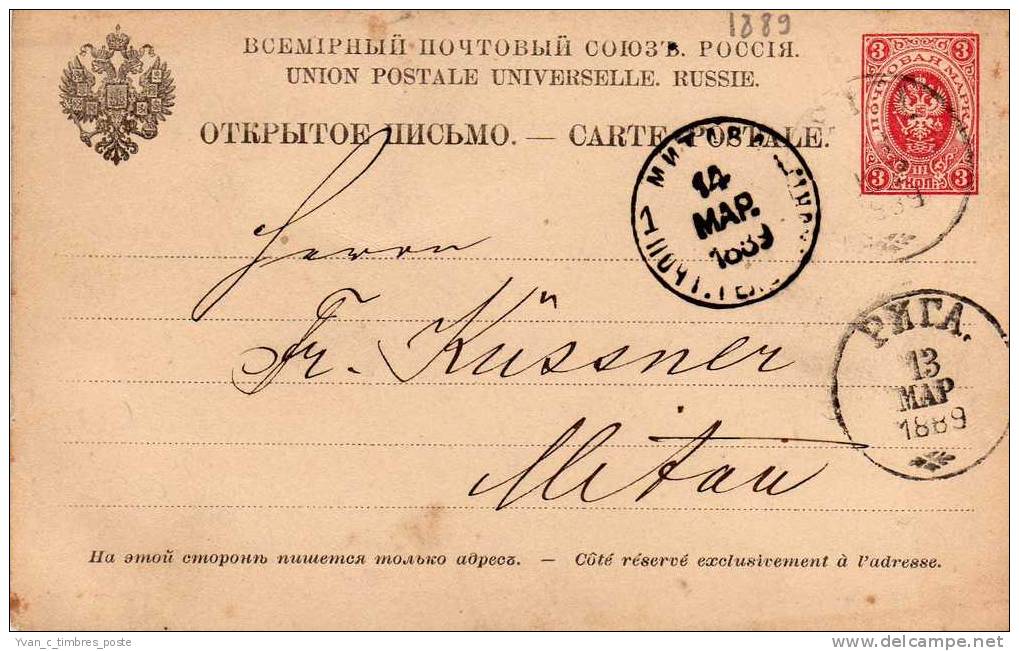 1889
ВСЕМІРНЫЙ ПОЧТОВЫЙ СОЮЗЪ. РОССІЯ.
UNION POSTALE UNIVERSELLE. RUSSIE.
ОТКРЫТОЕ ПИСЬМО. — CARTE POSTALE.
3 3
ПОЧТОВАЯ МАРКА
3 III КОП. 3
14
МАР.
1889
Herrn
Fr. Küssner
Mitau
РИГА.
13
МАР
1889
На этой сторонѣ пишется только адресъ. — Côté réservé exclusivement à l'adresse.
Yvan_c_timbres_poste
delcampe.net